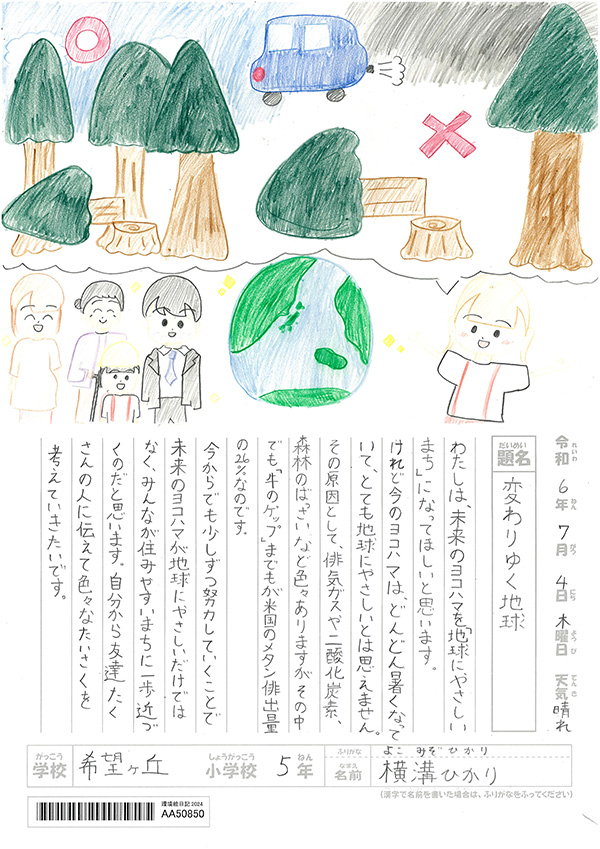 令和6年7月4日木曜日 天気晴れ
れいわ ねん がつ にち ようび てんき
だいめい
題名 変わりゆく地球
わたしは、未来のヨコハマを「地球にやさしい
まち」になってほしいと思います。
けれど今のヨコハマは、どんどん暑くなって
いて、とても地球にやさしいとは思えません。
その原因として、排気ガスや二酸化炭素、
森林のばっさいなど色々ありますが、その中
でも「牛のゲップ」までもが米国のメタン排出量
の26%なのです。
今からでも少しずつ努力していくことで
未来のヨコハマが地球にやさしいだけでは
なく、みんなが住みやすいまちに一歩近づ
くのだと思います。自分から友達、たく
さんの人に伝えて色々なたいさくを
考えていきたいです。
がっこう しょうがっこう ねん ふりがな よこみぞひかり
学校 希望ヶ丘 小学校 5年 なまえ 名前 横溝ひかり
(漢字で名前を書いた場合は、ふりがなをふってください)
環境絵日記2024
AA50850